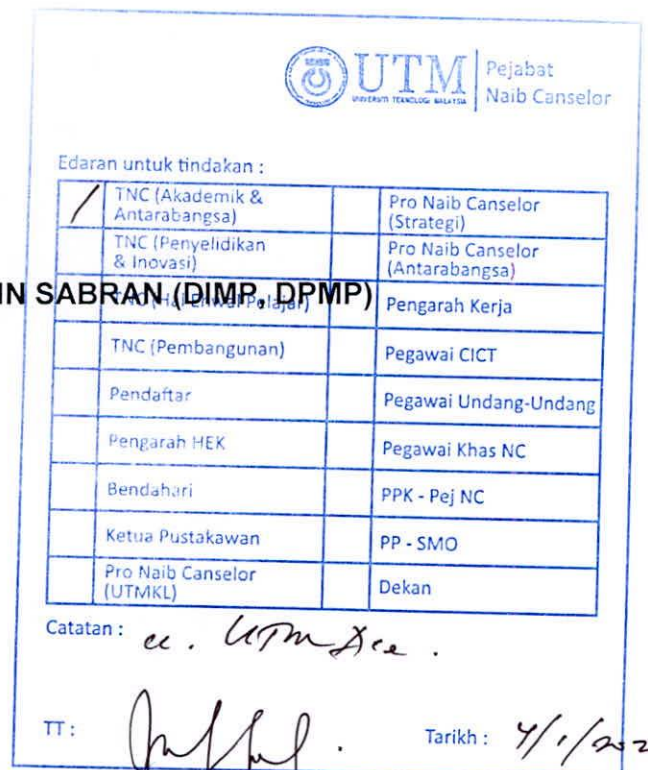 UTM
UNIVERSITI TEKNOLOGI MALAYSIA
Pejabat
Naib Canselor
Edaran untuk tindakan :
/ TNC (Akademik & Antarabangsa) Pro Naib Canselor (Strategi)
TNC (Penyelidikan & Inovasi) Pro Naib Canselor (Antarabangsa)
IN SABRAN (DIMP, DPMP)
TNC (Hal Ehwal Pelajar) Pengarah Kerja
TNC (Pembangunan) Pegawai CICT
Pendaftar Pegawai Undang-Undang
Pengarah HEK Pegawai Khas NC
Bendahari PPK - Pej NC
Ketua Pustakawan PP - SMO
Pro Naib Canselor (UTMKL) Dekan
Catatan : cc. UTM
TT : Tarikh : 4/1/202